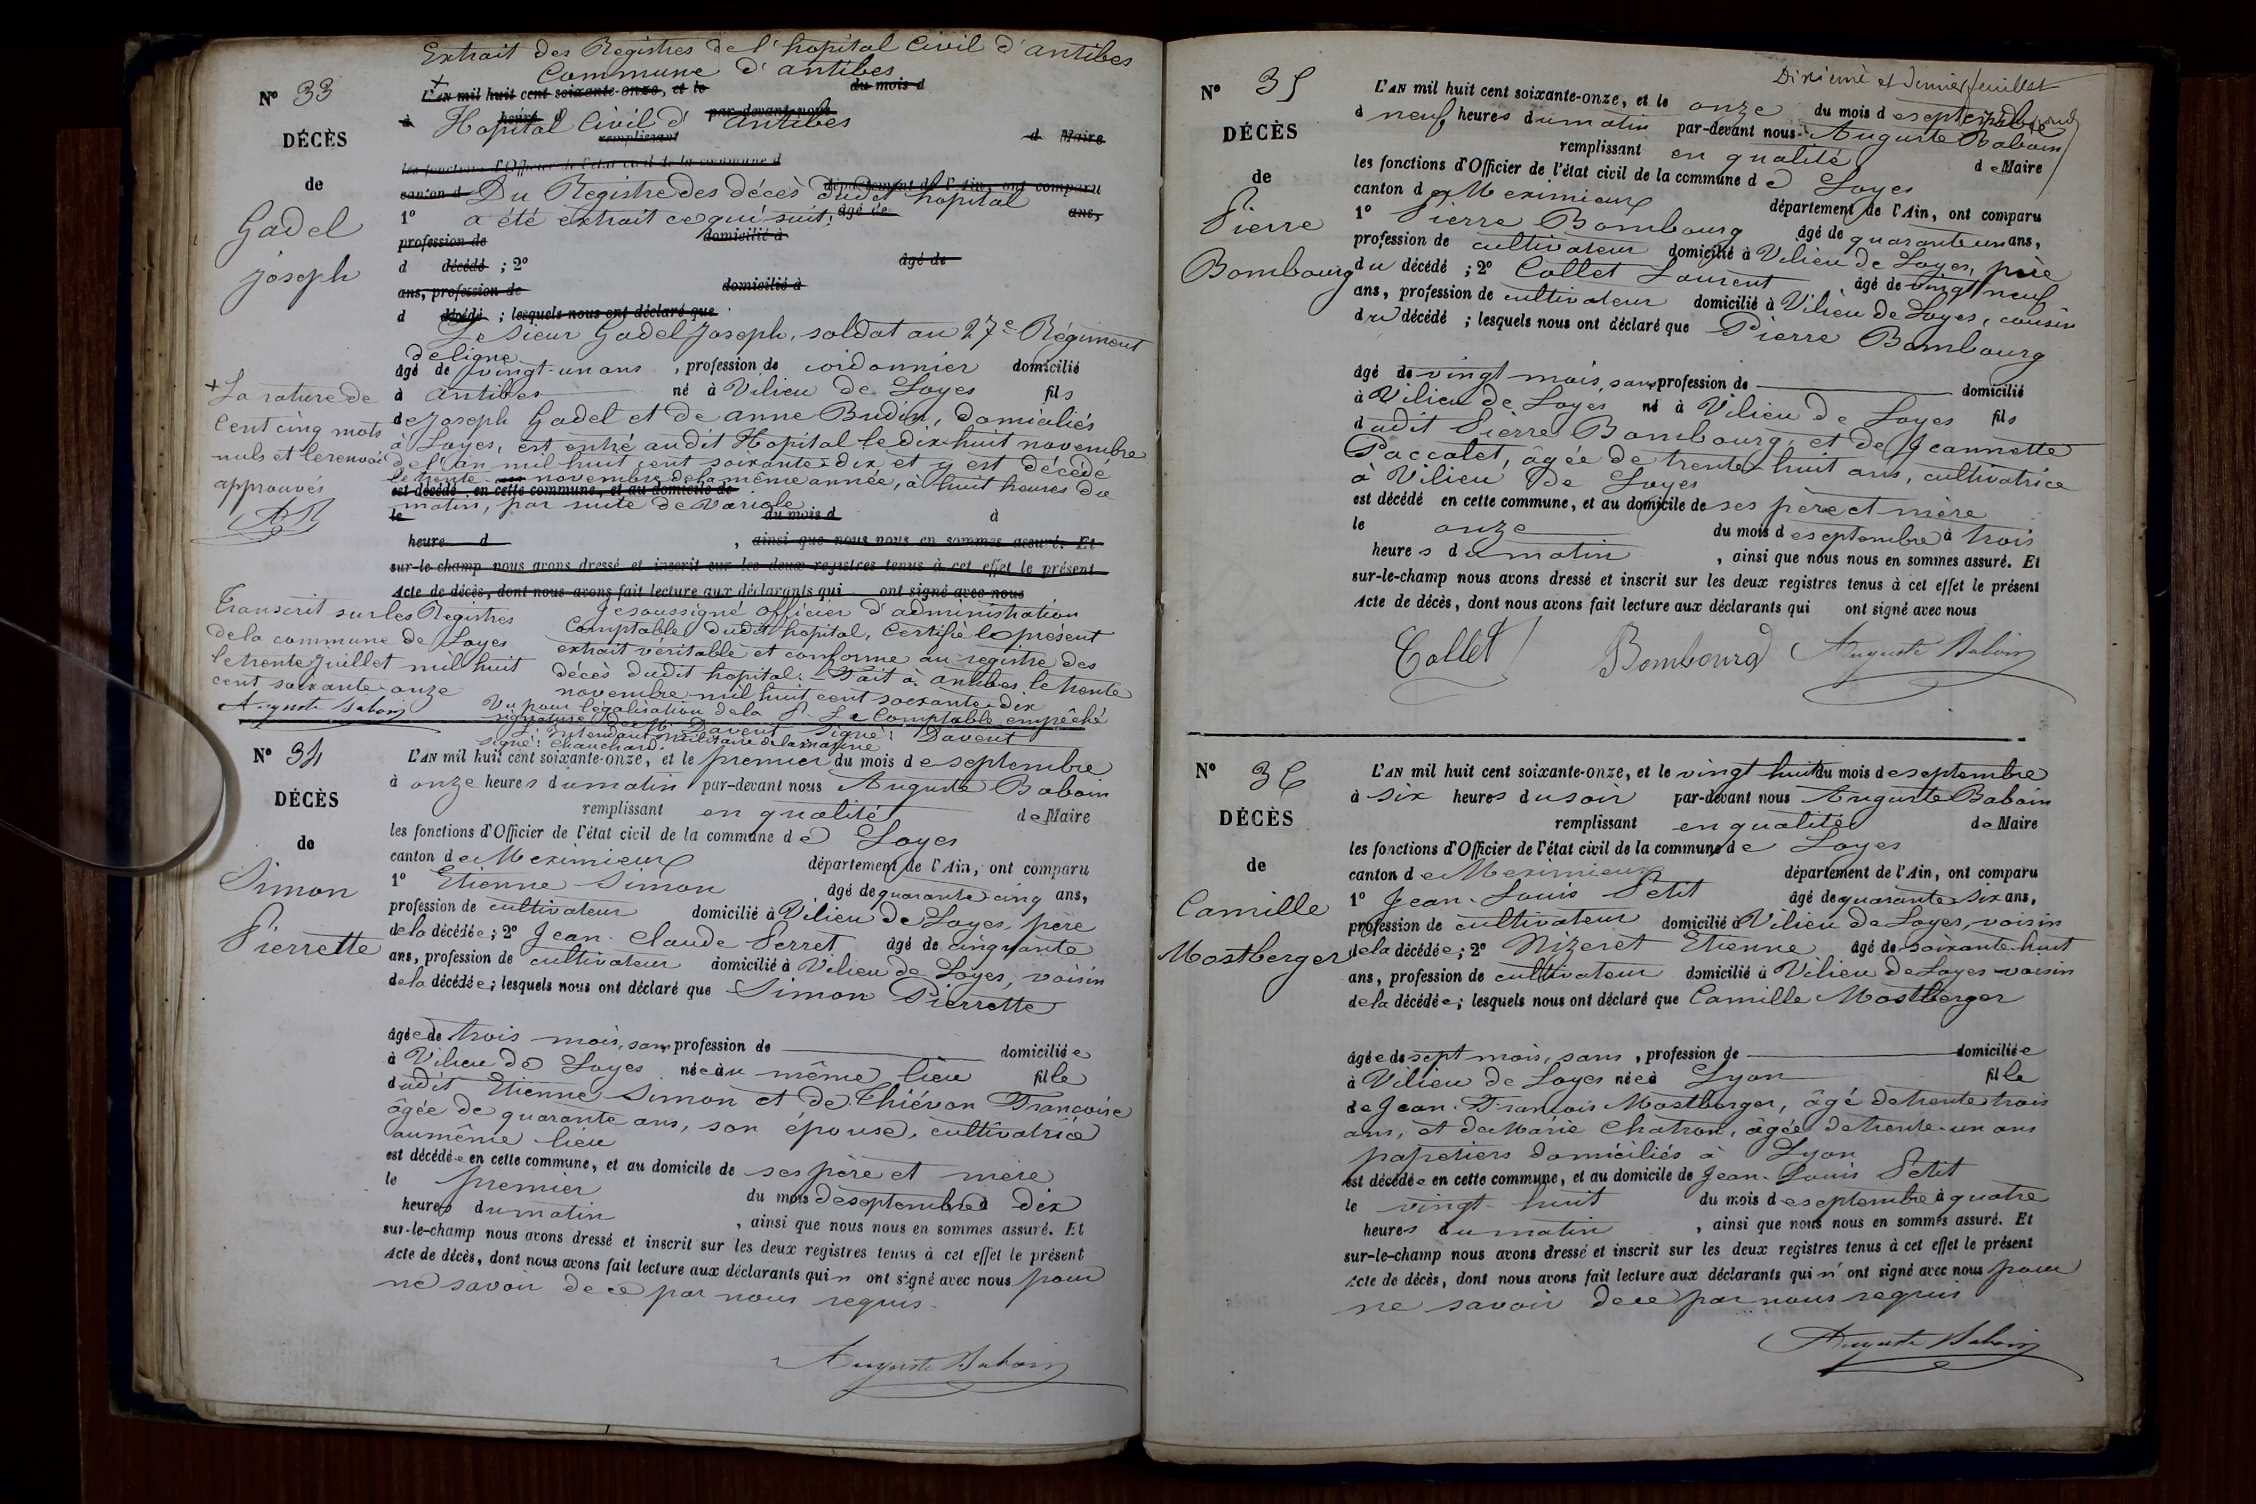 Extrait des Registres de l'hopital Civil d'antibes
Commune d'antibes
N° 33
L'AN mil huit cent soixante-onze, et le du mois d
à heure d par-devant nous
Hopital Civil d'antibes
remplissant d Maire
DÉCÈS
les fonctions d'Officier de l'état civil de la commune d
de
canton d département de l'Ain, ont comparu
Du Registre des décès dudit hopital
1° a été extrait ce qui suit: âgé de ans,
Gadel
joseph
profession de domicilié à
d décédé ; 2° âgé de
ans, profession de domicilié à
d décédé ; lesquels nous ont déclaré que
Le sieur Gadel Joseph, soldat au 27e Régiment
de ligne
âgé de vingt-un ans , profession de cordonnier domicilié
à antibes né à Vilieu de Loyes fils
de Joseph Gadel et de anne Budin, domiciliés
à Loyes, est entré audit Hopital le dix huit novembre
de l'an mil huit cent soixante-dix et y est décédé
le trente novembre de la même année, à huit heures du
est décédé en cette commune, et au domicile de
matin, par suite de Variole
le du mois d à
heure d , ainsi que nous nous en sommes assuré. Et
sur-le-champ nous avons dressé et inscrit sur les deux registres tenus à cet effet le présent
Acte de décès, dont nous avons fait lecture aux déclarants qui ont signé avec nous
+ La rature de
Cent cinq mots
nuls et le renvoi
approuvés
Je soussigné officier d'administration
Comptable dudit hopital, Certifie le présent
extrait véritable et conforme au registre des
décès dudit hopital. Fait à antibes le trente
novembre mil huit cent soixante-dix
Le Comptable empêché
Signé: Davent
Vu pour légalisation de la
signature de Mr Davent
L'Intendant militaire de la marine
signé: Chauchard.
Transcrit sur les Registres
de la commune de Loyes
le trente Juillet mil huit
cent soixante-onze
Auguste Baboin
N° 34
DÉCÈS
de
Simon
Pierrette
L'AN mil huit cent soixante-onze, et le premier du mois de septembre
à onze heures du matin par-devant nous Auguste Baboin
remplissant en qualité de Maire
les fonctions d'Officier de l'état civil de la commune de Loyes
canton de Meximieux département de l'Ain, ont comparu
1° Etienne Simon âgé de quarante cinq ans,
profession de cultivateur domicilié à Vilieu de Loyes, père
de la décédée; 2° Jean-Claude Perret âgé de cinquante
ans, profession de cultivateur domicilié à Vilieu de Loyes, voisin
de la décédée; lesquels nous ont déclaré que Simon Pierrette
âgée de trois mois, sans profession de domiciliée
à Vilieu de Loyes née au même lieu fille
dudit Etienne Simon et de Thiévon Françoise
âgée de quarante ans, son épouse, cultivatrice
au même lieu
est décédée en cette commune, et au domicile de ses père et mère
le premier du mois de septembre à dix
heures du matin , ainsi que nous nous en sommes assuré. Et
sur-le-champ nous avons dressé et inscrit sur les deux registres tenus à cet effet le présent
Acte de décès, dont nous avons fait lecture aux déclarants qui n'ont signé avec nous pour
ne savoir de ce par nous requis.
Auguste Baboin
Dixième et dernier feuillet
N° 35
DÉCÈS
de
Pierre
Bombourg
L'AN mil huit cent soixante-onze, et le onze du mois de septembre
à neuf heures du matin par-devant nous Auguste Baboin
remplissant en qualité de Maire
les fonctions d'Officier de l'état civil de la commune de Loyes
canton de Meximieux département de l'Ain, ont comparu
1° Pierre Bombourg âgé de quarante un ans,
profession de cultivateur domicilié à Vilieu de Loyes, père
du décédé ; 2° Collet Laurent âgé de vingt neuf
ans, profession de cultivateur domicilié à Vilieu de Loyes, cousin
du décédé ; lesquels nous ont déclaré que Pierre Bombourg
âgé de vingt mois, sans profession de domicilié
à Vilieu de Loyes né à Vilieu de Loyes fils
dudit Pierre Bombourg, et de Jeannette
Paccalet, agée de trente-huit ans, cultivatrice
à Vilieu de Loyes
est décédé en cette commune, et au domicile de ses père et mère
le onze du mois de septembre à trois
heures du matin , ainsi que nous nous en sommes assuré. Et
sur-le-champ nous avons dressé et inscrit sur les deux registres tenus à cet effet le présent
Acte de décès, dont nous avons fait lecture aux déclarants qui ont signé avec nous
Collet Bombourg Auguste Baboin
N° 36
DÉCÈS
de
Camille
Mostberger
L'AN mil huit cent soixante-onze, et le vingt huit du mois de septembre
à six heures du soir par-devant nous Auguste Baboin
remplissant en qualité de Maire
les fonctions d'Officier de l'état civil de la commune de Loyes
canton de Meximieux département de l'Ain, ont comparu
1° Jean-Louis Petit âgé de quarante six ans,
profession de cultivateur domicilié à Vilieu de Loyes, voisin
de la décédée; 2° Nizeret Etienne âgé de soixante-huit
ans, profession de cultivateur domicilié à Vilieu de Loyes voisin
de la décédée; lesquels nous ont déclaré que Camille Mostberger
âgée de sept mois, sans , profession de domiciliée
à Vilieu de Loyes née à Lyon fille
de Jean-François Mostberger, âgé de trente trois
ans, et de Marie Chatron, âgée de trente-un ans
papetiers domiciliés à Lyon
est décédée en cette commune, et au domicile de Jean-Louis Petit
le vingt-huit du mois de septembre à quatre
heures du matin , ainsi que nous nous en sommes assuré. Et
sur-le-champ nous avons dressé et inscrit sur les deux registres tenus à cet effet le présent
Acte de décès, dont nous avons fait lecture aux déclarants qui n'ont signé avec nous pour
ne savoir de ce par nous requis
Auguste Baboin